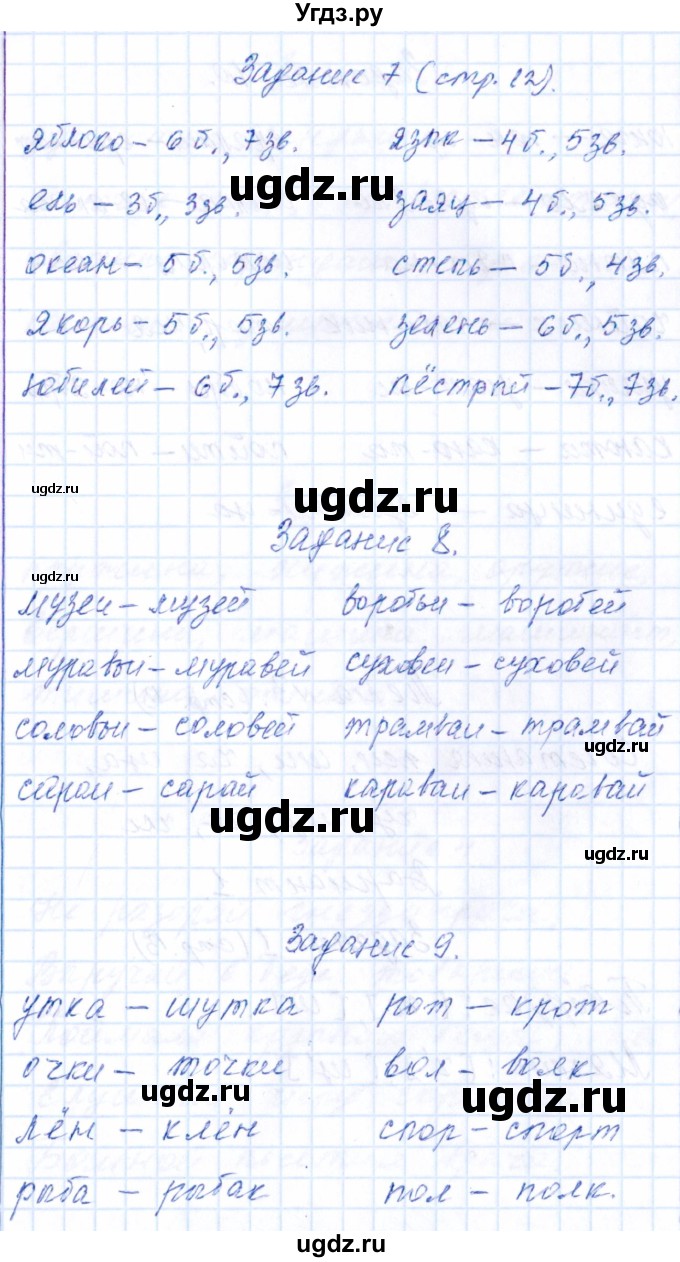 Угдз.ру
Задание 7 (стр. 12).
яблоко – 6 б., 7 зв. язык – 4 б., 5 зв.
ugdz.ru
ель – 3 б., 3 зв. заяц – 4 б., 5 зв.
океан – 5 б., 5 зв. степь – 5 б., 4 зв.
якорь – 5 б., 5 зв. зелень – 6 б., 5 зв.
юбилей – 6 б., 7 зв. пёстрый – 7 б., 7 зв.
ugdz.ru
ugdz.ru
Задание 8.
музеи – музей воробьи – воробей
муравьи – муравей суховеи – суховей
соловьи – соловей трамваи – трамвай
ugdz.ru
сараи – сарай караваи – каравай
ugdz.ru
ugdz.ru
Задание 9.
утка – шутка рот – крот
очки – точки вол – волк
ugdz.ru
ugdz.ru
лён – клён спор – спорт
рыба – рыбак пол – полк.
ugdz.ru